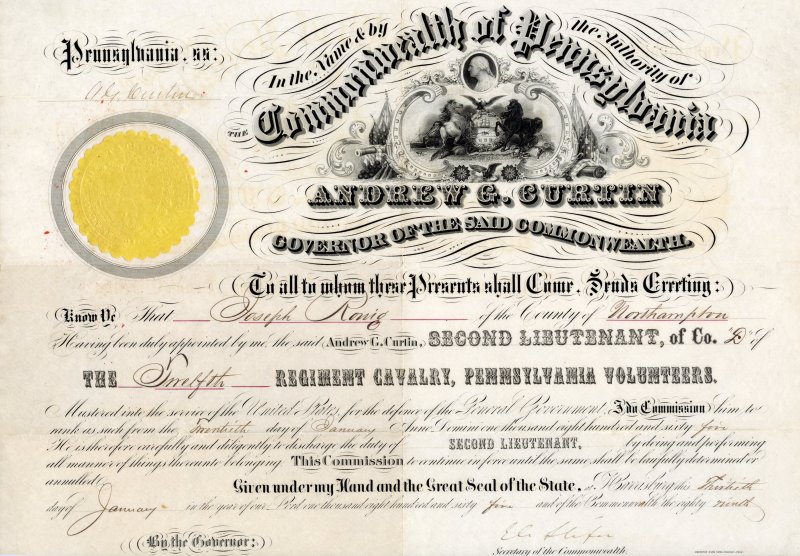 Pennsylvania, ss:
In the Name & by the Authority of
THE Commonwealth of Pennsylvania
A. G. Curtin
ANDREW G. CURTIN
GOVERNOR OF THE SAID COMMONWEALTH.
To all to whom these Presents shall Come, Sends Greeting:
Know Ye That Joseph Konig of the County of Northampton
Having been duly appointed by me, the said Andrew G. Curtin, SECOND LIEUTENANT, of Co. D of
THE Twelfth REGIMENT CAVALRY, PENNSYLVANIA VOLUNTEERS.
Mustered into the service of the United States, for the defence of the General Government, I do Commission him to
rank as such from the Twentieth day of January Anno Domini one thousand eight hundred and sixty five
He is therefore carefully and diligently to discharge the duty of SECOND LIEUTENANT, by doing and performing
all manner of things thereunto belonging This Commission to continue in force until the same shall be lawfully determined or
annulled.
Given under my Hand and the Great Seal of the State, at Harrisburg this Thirtieth
day of January in the year of our Lord one thousand eight hundred and sixty five and of the Commonwealth the eighty ninth
By the Governor:
Eli Slifer
Secretary of the Commonwealth.